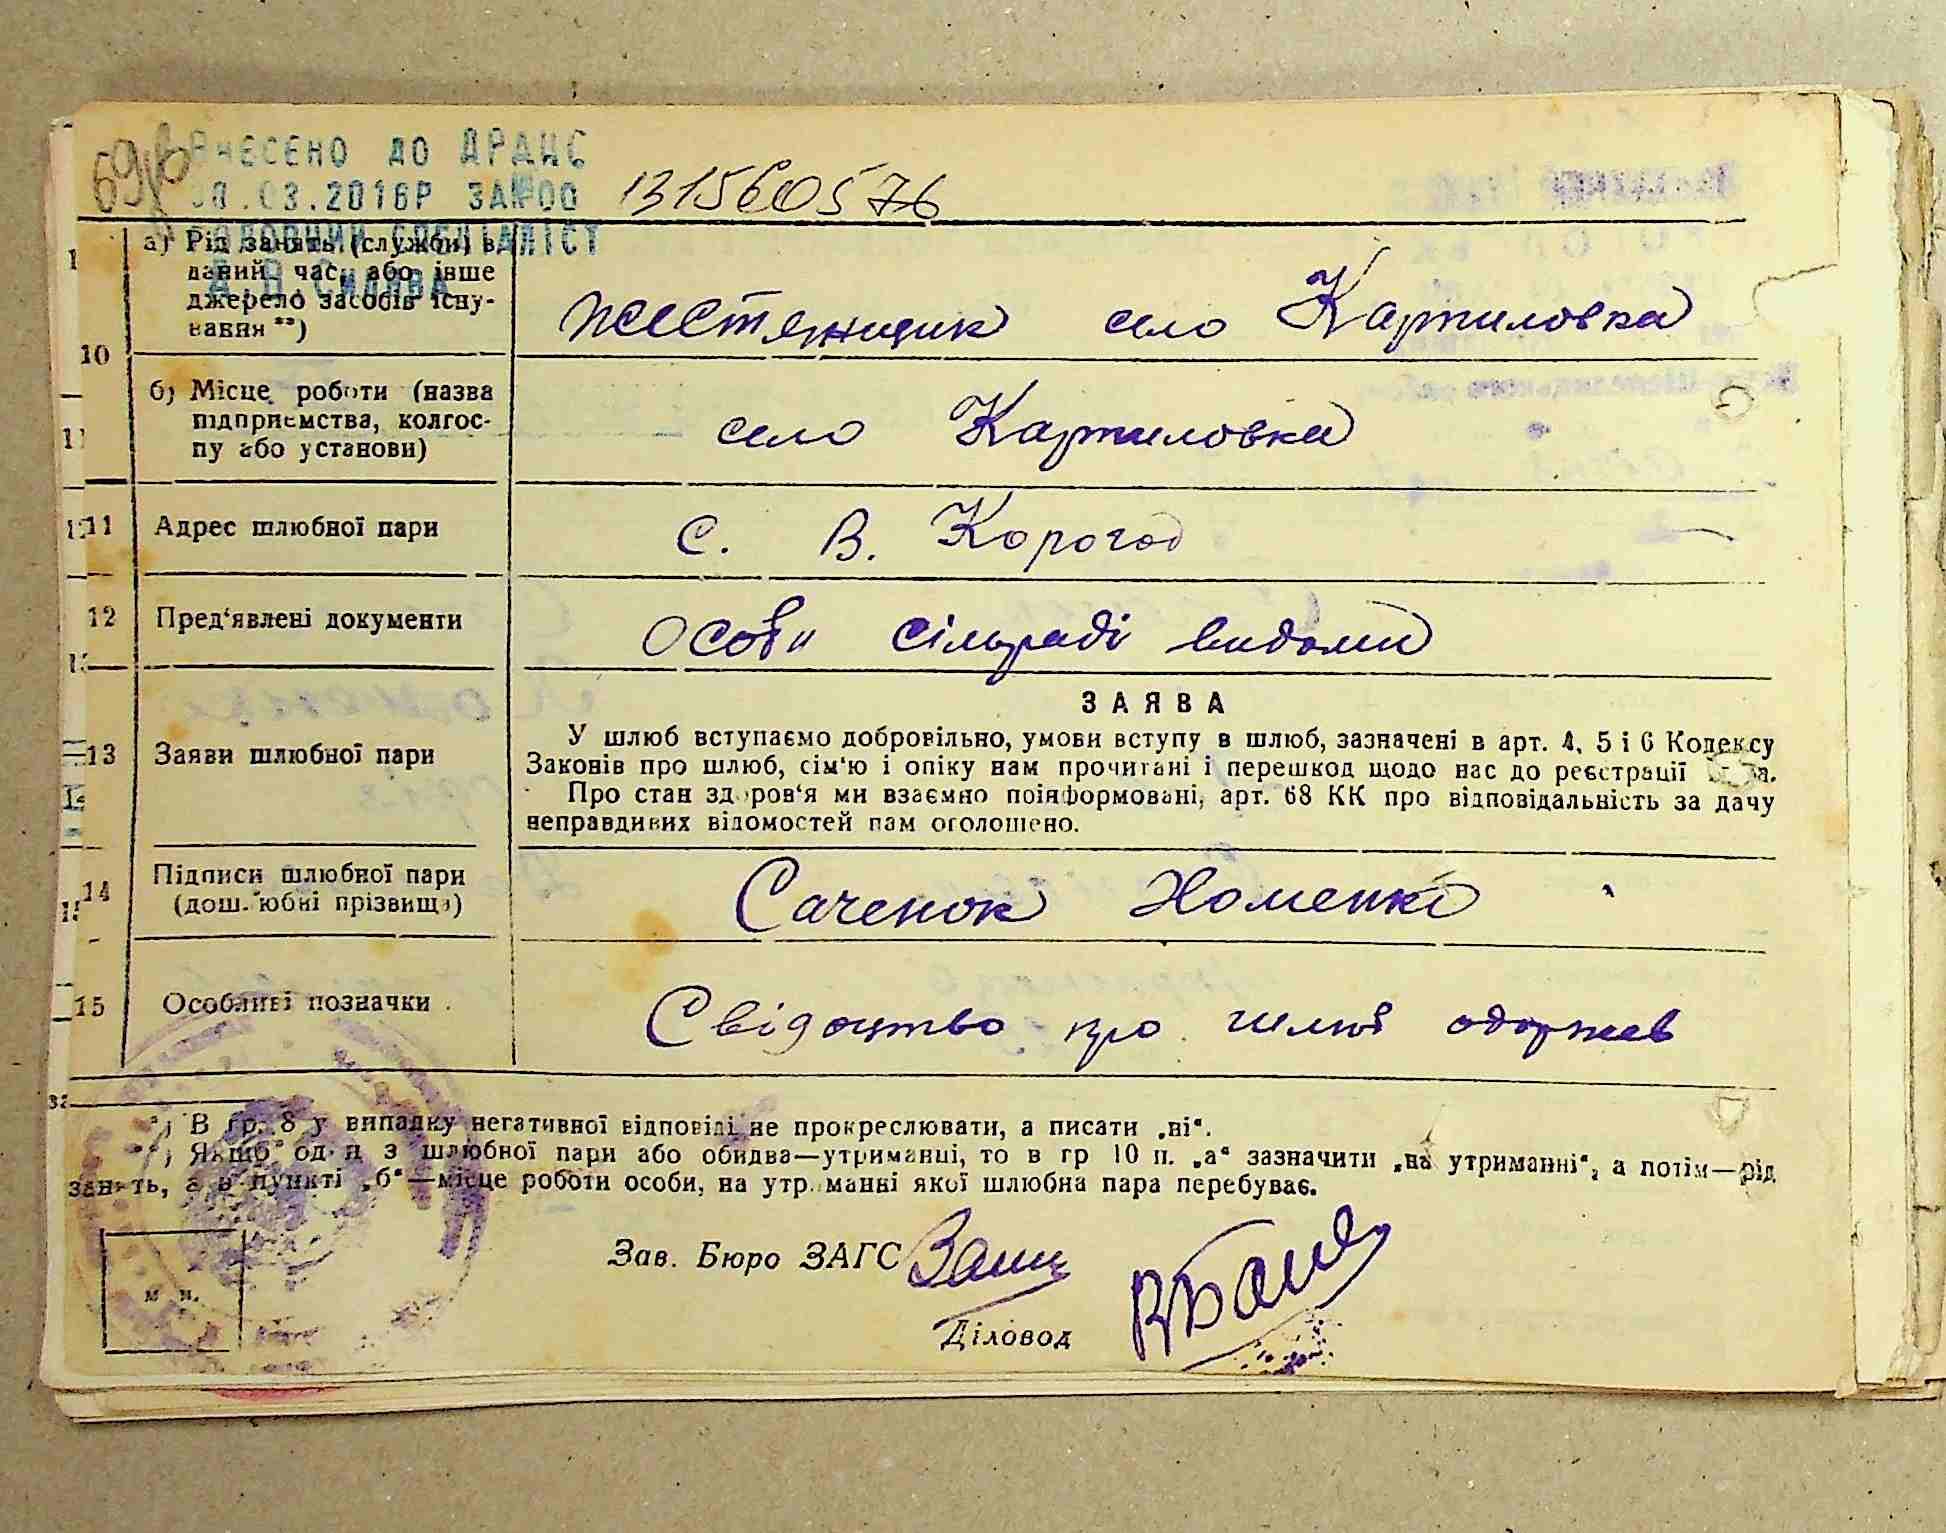 69 зв
ВНЕСЕНО ДО ДРАЦС
.03.2016Р ЗА№00 131560576
ГОЛОВНИЙ СПЕЦІАЛІСТ
10 а) Рід занять (служби) в даний час або інше джерело засобів існування **)
жестянщик село Карпиловка
б) Місце роботи (назва підприємства, колгоспу або установи)
село Карпиловка
11 Адрес шлюбної пари
с. В. Корогод
12 Пред‘явлені документи
Особи сільраді видоми
13 Заяви шлюбної пари
ЗАЯВА
У шлюб вступаємо добровільно, умови вступу в шлюб, зазначені в арт. 4, 5 і 6 Кодексу
Законів про шлюб, сім‘ю і опіку нам прочитані і перешкод щодо нас до реєстрації
Про стан здоров‘я ми взаємно поінформовані, арт. 68 КК про відповідальність за дачу
неправдивих відомостей нам оголошено.
14 Підписи шлюбної пари
(дошлюбні прізвища)
Саченок Хоменко
15 Особливі позначки
Свідоцтво про шлюб одержав
*) В гр. 8 у випадку негативної відповіді не прокреслювати, а писати „ні“.
**) Якщо один з шлюбної пари або обидва—утриманці, то в гр 10 п. „а“ зазначити „на утриманні“, а потім—рід
занять, а в пункті „б“—місце роботи особи, на утриманні якої шлюбна пара перебуває.
Зав. Бюро ЗАГС
Діловод
м п.